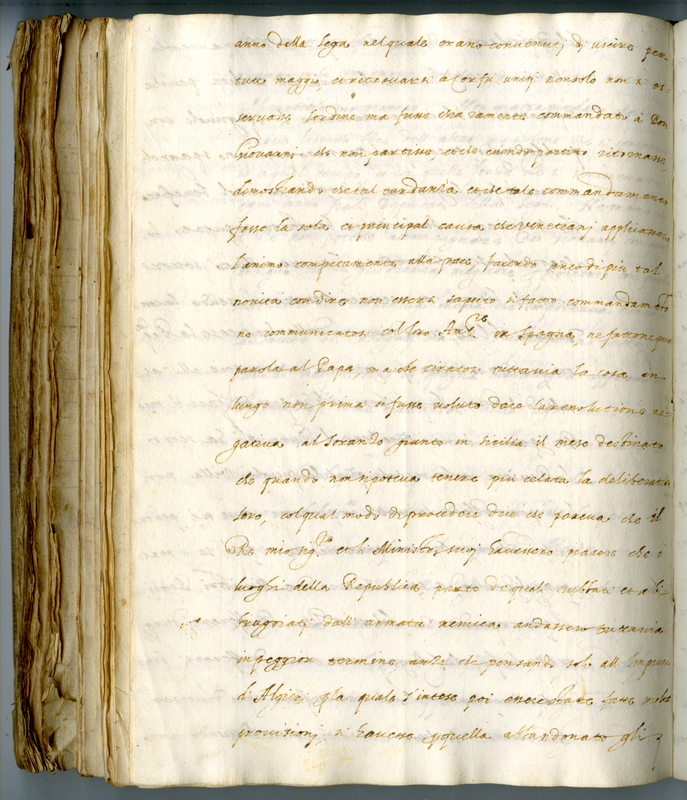 anno della lega nel quale erano convenuti di uscire per
tutto maggio, et ritrovarsi a Corfu uniti non solo non s' os-
servass. l'ordine ma fusse chiaramente commandato à Don
Giovanni che non partisse, et che essendo partito ritornasse,
dimostrando che tal tardanza et che tale commandamento
fosse la sola et principal causa che venetiani applicassero
l'animo compitamente alla pace facendo anco di più tal
novità con dire non essersi saputo si fatto commandam.to
ne communicatos col loro Amb.re in Spagna, ne fattone pur
parola al Papa, ma che tiratos tuttavia la cosa in
lungo non prima si fusse voluto dare la resolutione ne-
gativa al Soranzo giunto in Sicilia il mese destinato
che quando non si poteva tenere più celata la deliberatio
loro, col qual modo di procedere dice che pareva che il
Rè mio sig.re et li Ministri suoi havessero piacere che i
luoghi della Republica, parte de quali rubbati et ab-
bruggiati dall'armata nemica andassero tuttavia
in peggior termine, anzi che pensando solo all'Impresa
d'Algieri, p la quale s'intese poi essere state fatte molte
provisioni, si havesse p quella abbandonato gli